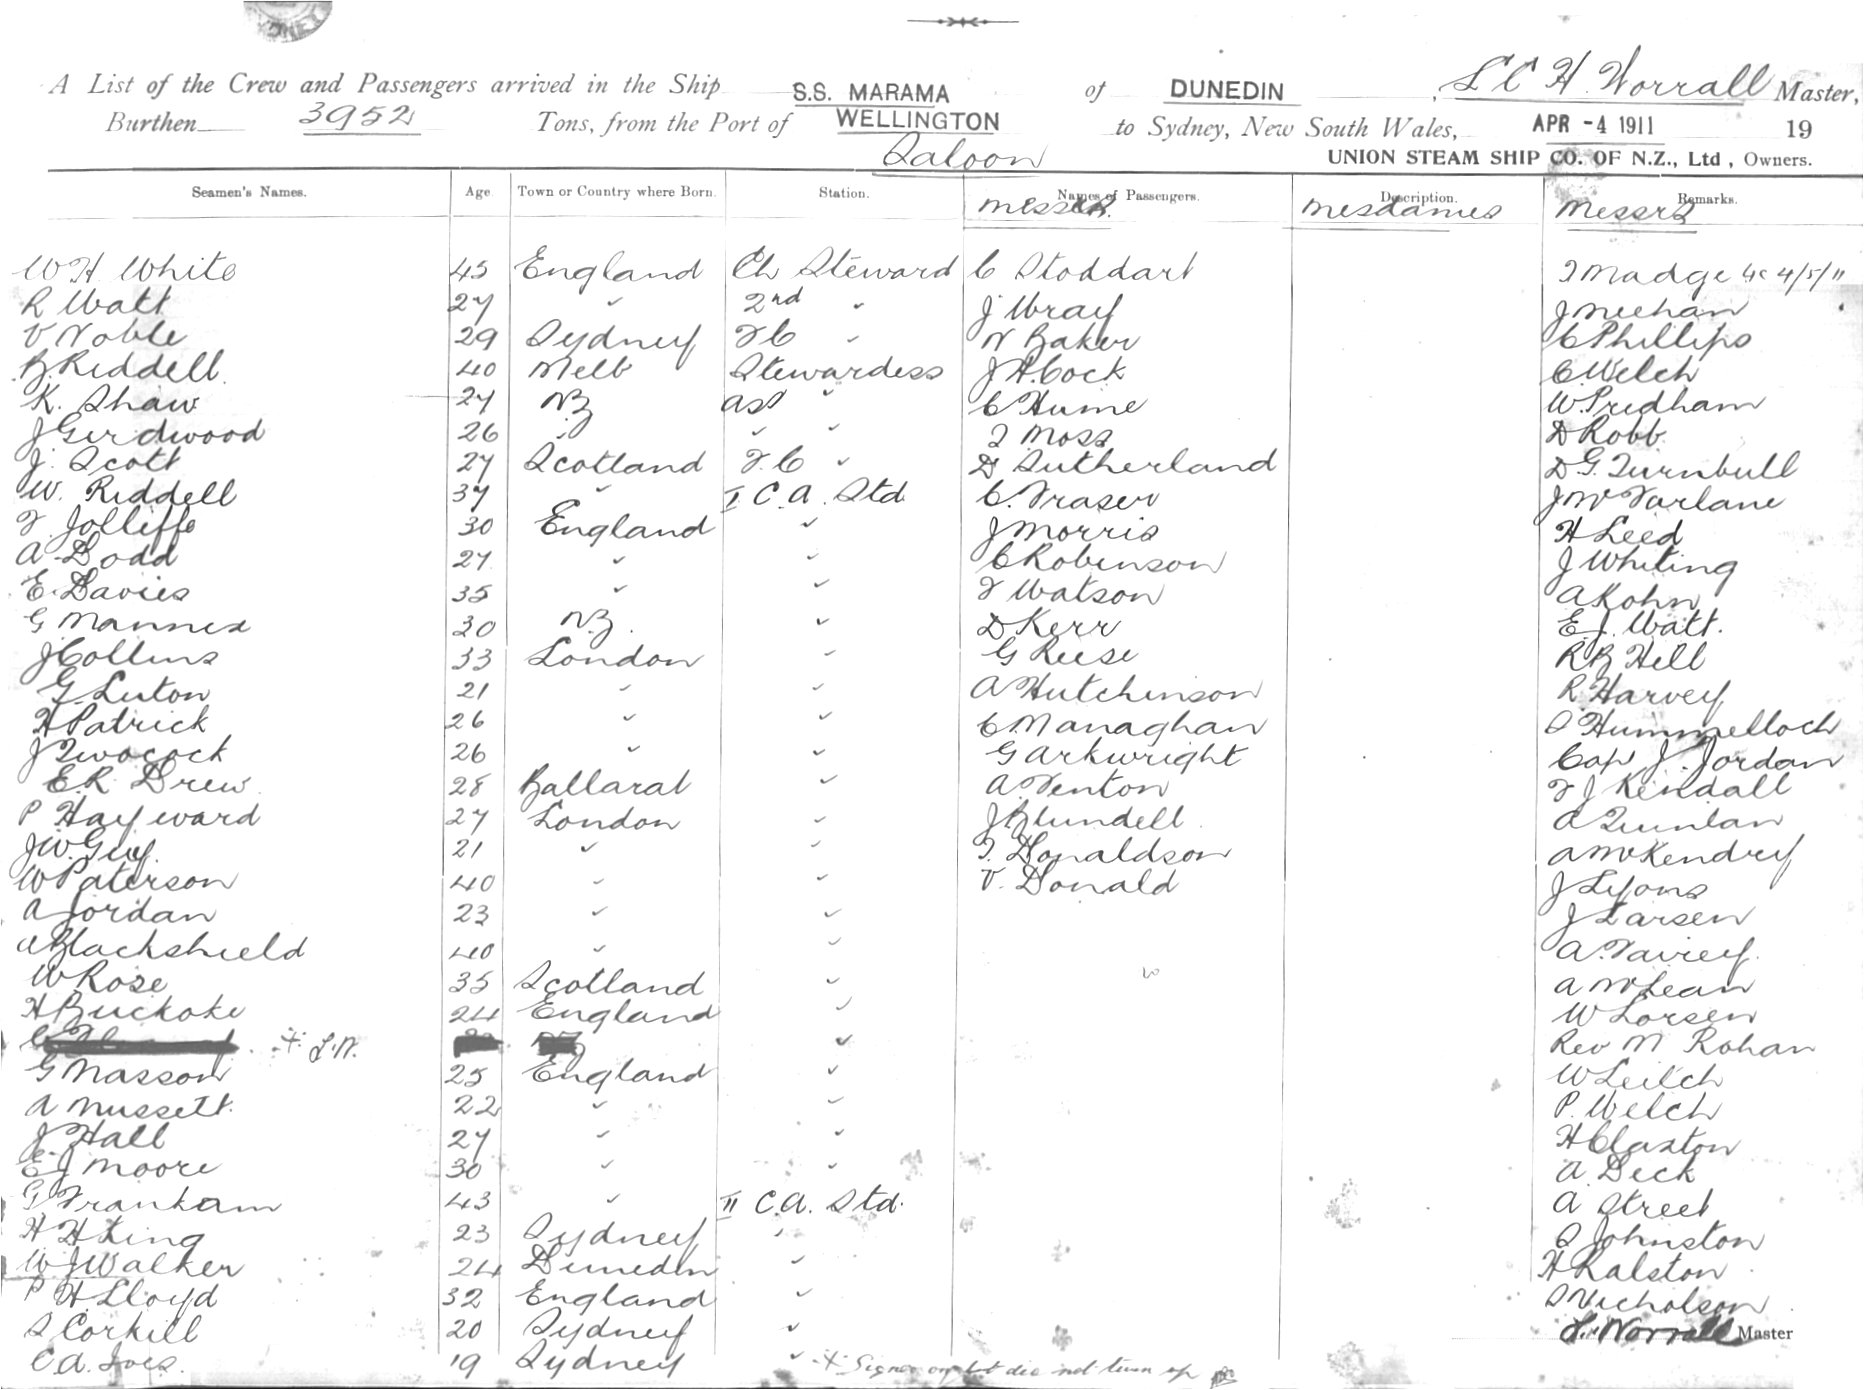 A List of the Crew and Passengers arrived in the Ship S.S. MARAMA of DUNEDIN, L C H Worrall Master,
Burthen 3952 Tons, from the Port of WELLINGTON to Sydney, New South Wales, APR -4 1911 19
Saloon UNION STEAM SHIP CO. OF N.Z., Ltd, Owners.
Seamen's Names. Age. Town or Country where Born. Station. Names of Passengers. Description. Remarks.
Messrs. Mesdames Messrs
W H White 45 England Ch Steward C Stoddart T Madge 4/5/11
R Watt 27 " 2nd " J Wray J Meehan
V Noble 29 Sydney F C " N Baker C Phillips
B. Riddell 40 Melb Stewardess J H. Cock C. Welch
K. Shaw 27 NZ ass " C Hume W. Pridham
J Girdwood 26 " " " T Moss D Robb
J. Scott 27 Scotland F. C " D Sutherland D G. Turnbull
W. Riddell 37 " I C. A. Std C. Fraser J Mc Farlane
F. Jolliffe 30 England " J Morris H Leed
A. Dodd 27 " " C Robinson J Whiting
E. Davies 35 " " F Watson A Kohn
G Mannex 30 N.Z. " D Kerr E. J. Watt.
J Collins 33 London " G Reese R B Hill
G. Luton 21 " " A Hutchinson R Harvey
H Patrick 26 " " C. Managhan S Hummelloch
J Twocock 26 " " G Arkwright Cap J. Jordan
E. R Drew 28 Ballarat " A. Fenton F J Kendall
P Hayward 27 London " J Blundell A Quinlan
J W. Guy. 21 " " T. Donaldson A McKendry
W Paterson 40 " " V. Donald J Lyons
A Jordan 23 " " J Larsen
A Blackshield 40 " " A. Fairey.
W Rose 35 Scotland " A McLean
H Buckoke 24 England " W Lorsen
+ L.W. " Rev M Rohan
G Masson 25 England " W Leitch
A Mussett. 22 " " P. Welch
J Hall 27 " " H Claxton
E. J Moore 30 " " A. Deck
G Frankham 43 " II C. A. Std. A Street
H H King 23 Sydney " S Johnston
W J Walker 24 Dunedin " H Ralston
P H. Lloyd 32 England " S Nicholson
S Corkill 20 Sydney " L. Worrall Master
C A. Ives. 19 Sydney " + Signed on but did not turn up